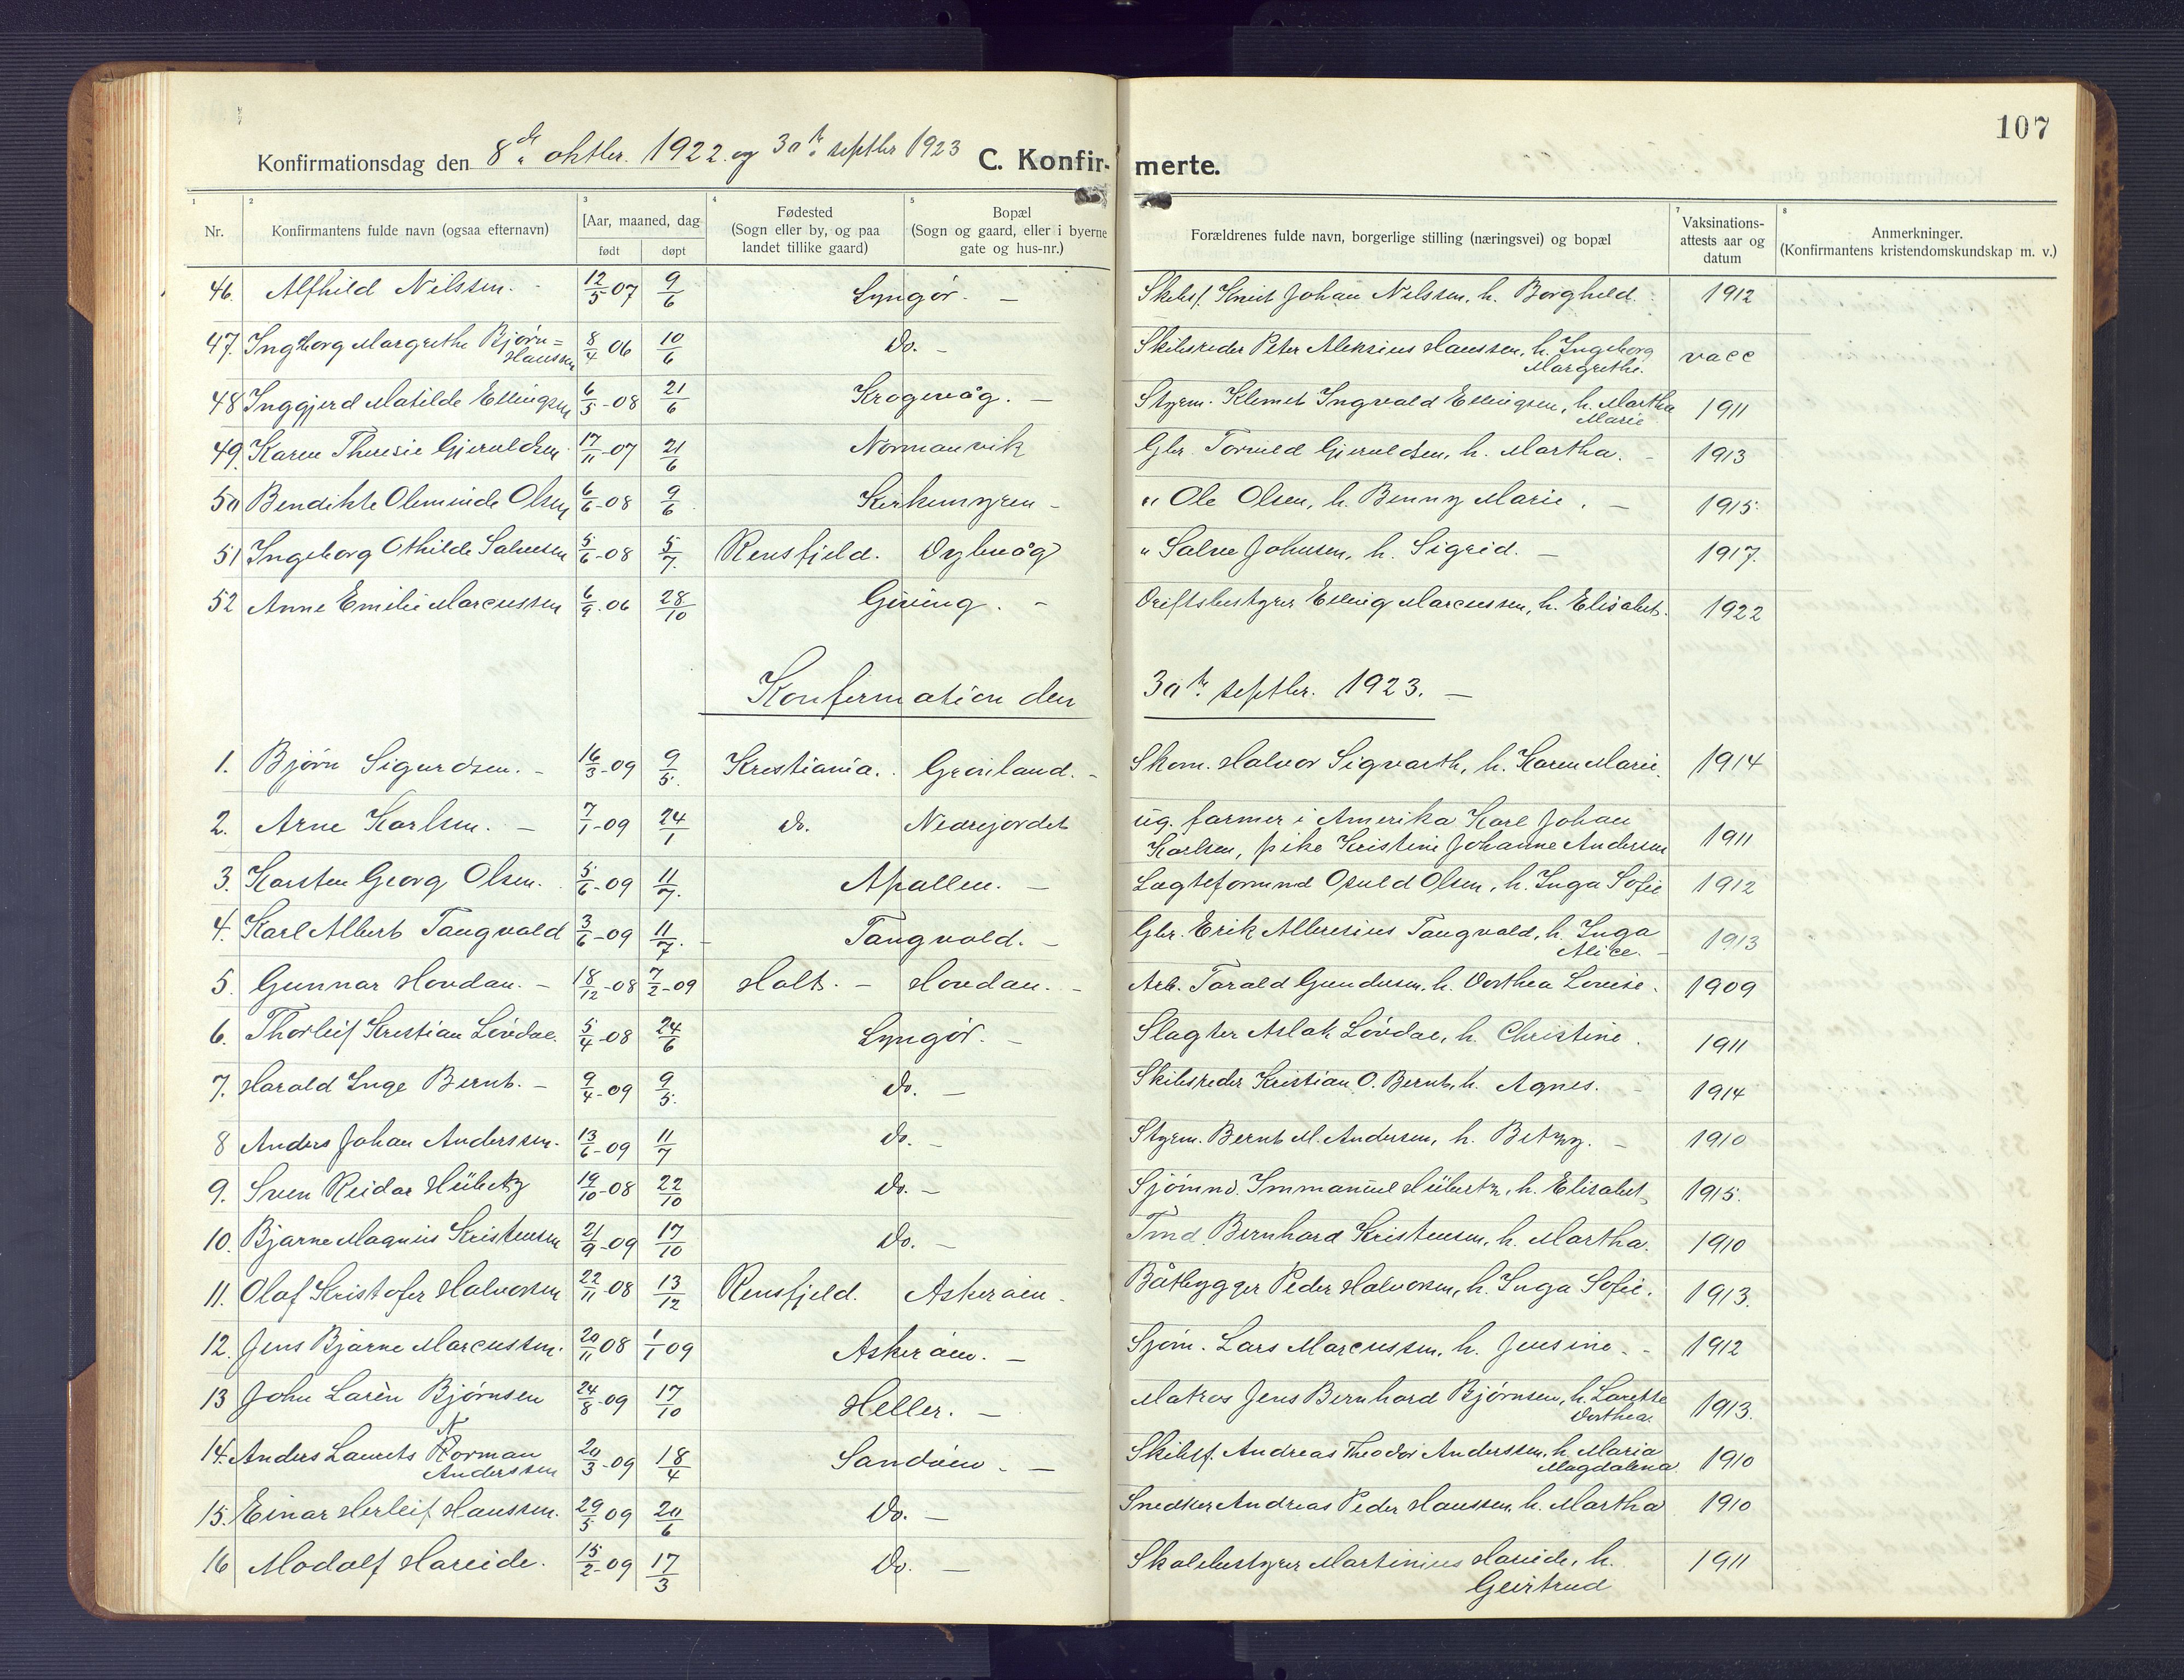 107
Konfirmationsdag den 8de oktbr. 1922 og 30te septbr 1923 C. Konfirmerte.
1 2 3 4 5 7 8
Nr. Konfirmantens fulde navn (ogsaa efternavn) [Aar, maaned, dag født døpt Fødested (Sogn eller by, og paa landet tillike gaard) Bopæl (Sogn og gaard, eller i byerne gate og hus-nr.) Forældrenes fulde navn, borgerlige stilling (næringsvei) og bopæl Vaksinations-attests aar og datum Anmerkninger. (Konfirmantens kristendomskundskap m. v.)
46. Alfhild Nilssen. 12/5 07 9/6 Lyngør. — Skibsf. Knut Johan Nilssen, h. Borghild. 1912
47. Ingeborg Margrethe Bjørn= Hanssen 8/4 06 10/6 Do. — Skibsreder Peter Aleksius Hanssen, h. Ingeborg Margrethe. vacc
48 Inggjerd Matilde Ellingsen 6/5-08 21/6 Krogevåg. — Styrm. Klemet Ingvald Ellingsen, h. Martha Marie 1911
49. Karen Theresie Gjeruldsen 17/11-07 21/6 Normanvik Gbr. Torvild Gjeruldsen, h. Martha. 1913
50 Bendikte Oleminde Olsen 6/6-08 9/6 Kirkemyren — " Ole Olsen, h. Benny Marie. — 1915.
51 Ingeborg Othilde Salvesen 5/6-08 5/7. Rensfjeld. Dybvåg " Salve Johnsen, h. Sigrid. — 1917.
52 Anne Emilie Marcussen 6/9.06 28/10 Gjving. — Driftsbestyrer Elling Marcussen, h. Elisabet. 1922
Konfirmation den 30te septbr. 1923. —
1. Bjørn Sigurdsen. — 16/3-09 9/5. Kristiania. Grønland. — Skom. Halvor Sigvarth, h. Karen Marie. 1914
2. Arne Karlsen. — 7/1-09 24/1 do. Nedrejordet ug. farmer i Amerika Karl Johan
Karlsen, pike Kristine Johanne Andersen 1911
3. Karsten Georg Olsen. 5/6-09 11/7. Apallen. — Lagteformnd Osuld Olsen, h. Inga Sofie 1912
4. Karl Albert Tangvald 3/6-09 11/7. Tangvald. — Gbr. Erik Albresius Tangvald, h. Inga Alice. 1913
5. Gunnar Hovdan. — 18/12-08 7/2-09 Holt. — Hovdan. — Arb. Torald Gundersen, h. Dorthea Lovise. 1909
6. Thorleif Kristian Løvdal. 5/4-08 24/6 Lyngør. — Slagter Aslak Løvdal, h. Christine. 1911
7. Harald Inge Bernt. — 9/4-09 9/5. do. — Skibsreder Kristian O. Bernt, h. Agnes. 1914
8 Anders Johan Anderssen. 13/6-09 11/7 do. — Styrm. Bernt M. Andersen, h. Betzy. — 1910
9. Sven Reidar Hübertz 19/10-08 22/10 do. — Sjømnd. Immanuel Hübertz, h. Elisabet 1915.
10. Bjarne Magnus Kristensen 21/9-09 17/10 Do. — Tmd. Bernhard Kristensen, h. Martha. 1910
11. Olaf Kristofer Halvorsen 22/11-08 13/12 Rensfjeld. Askerøien — Båtbygger Peder Halvorsen, h. Inga Sofie. 1913.
12. Jens Bjarne Marcussen. 20/11 08 1/1 09 Askerøien. — Sjøm. Lars Marcussen, h. Jensine. — 1912
13 John Larèn Bjørnsen 24/8-09 17/10 Heller. — Matros Jens Bernhard Bjørnsen, h. Laurette Dorthea 1913.
14. Anders Laurets Norman Anderssen 20/3-09 18/4 Sandøien. — Skibsf. Andreas Theodor Anderssen, h. Maria Magdalena 1910
15. Einar Herleif Hanssen. 29/5 09 20/6 Do. — Snedker Andreas Peder Hanssen, h. Martha 1910
16 Modolf Hareide. 15/2-09 17/3 Do. — Skolebestyrer Martinius Hareide, h.
Geirtrud 1911